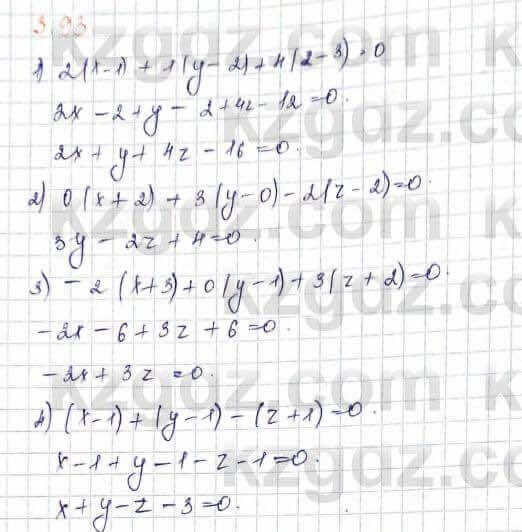 3.93
1) 2(x-1)+1(y-2)+4(z-3)=0
2x-2+y-2+4z-12=0.
2x+y+4z-16=0.
2) 0(x+2)+3(y-0)-2(z-2)=0.
3y-2z+4=0.
3) -2(x+3)+0(y-1)+3(z+2)=0.
-2x-6+3z+6=0.
-2x+3z=0.
4) (x-1)+(y-1)-(z+1)=0.
x-1+y-1-z-1=0.
x+y-z-3=0.
kzgdz.com